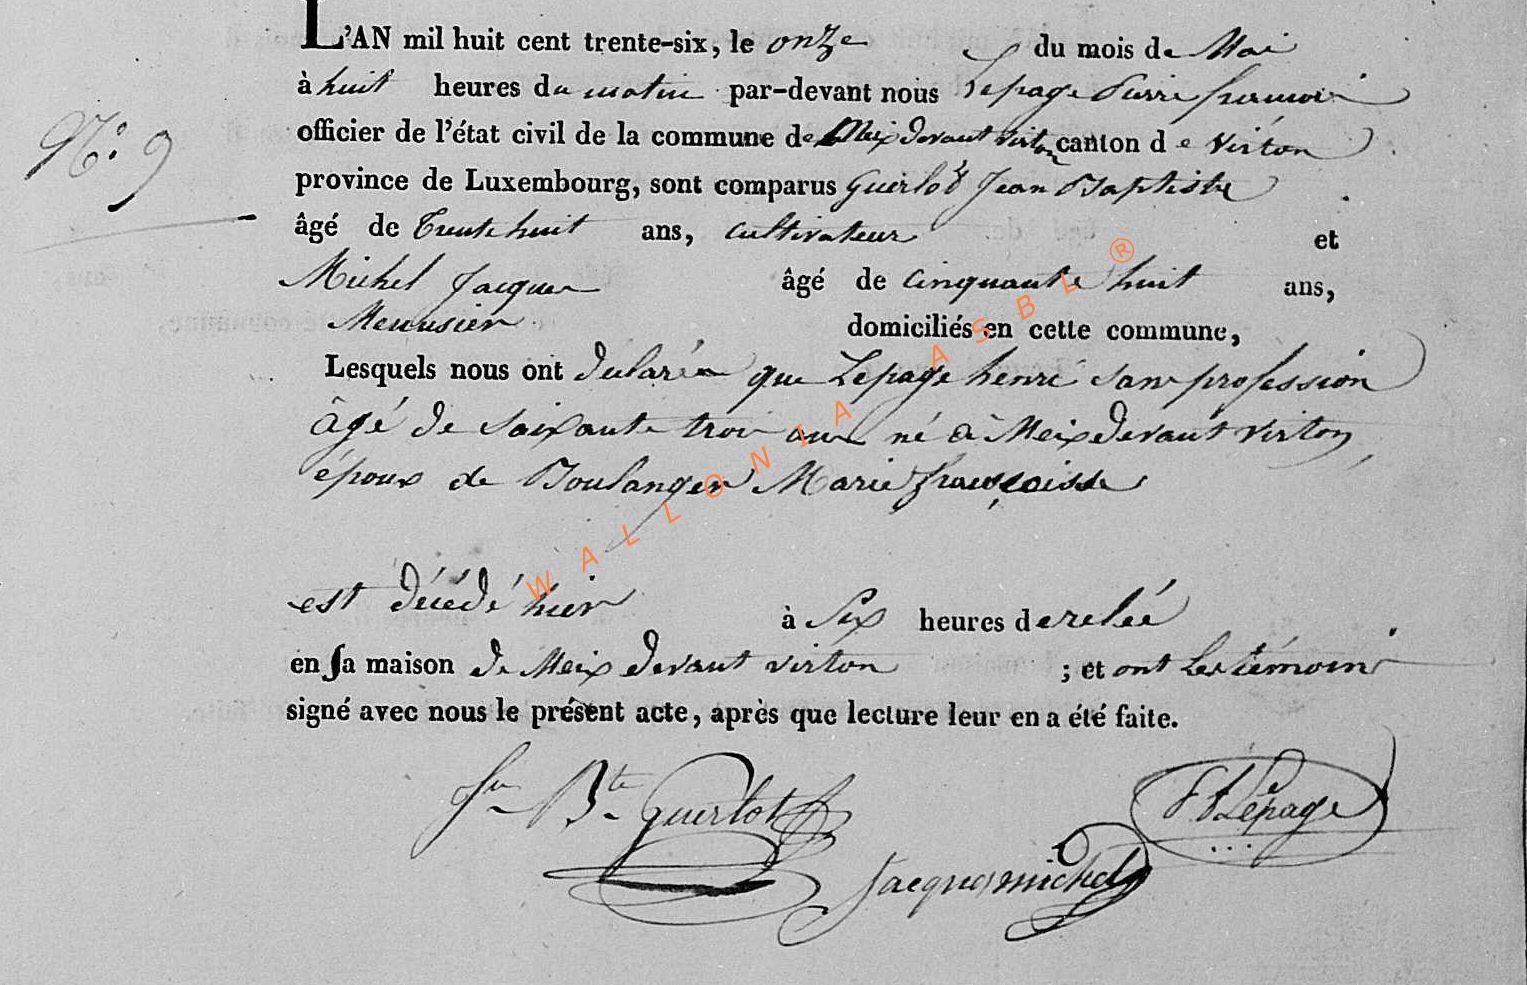 L'AN mil huit cent trente-six, le onze du mois de Mai
à huit heures du matin par-devant nous Lepage Pierre françois
N.° 9
officier de l'état civil de la commune de Meix devant virton canton de virton
province de Luxembourg, sont comparus Guerlot Jean Baptiste
âgé de Trente huit ans, cultivateur et
Michel Jacques âgé de cinquante huit ans,
Menusier domiciliés en cette commune,
Lesquels nous ont déclarés que Lepage henri sans profession
âgé de Soixante trois ans né à Meix devant virton
époux de Boulanger Marie françoisse
est décédé hier à Six heures de relée
en sa maison de Meix devant virton ; et ont Les témoins
signé avec nous le présent acte, après que lecture leur en a été faite.
Jn Bte Guerlot
Lepage
Jacques michel
WALLONIA ASBL ®